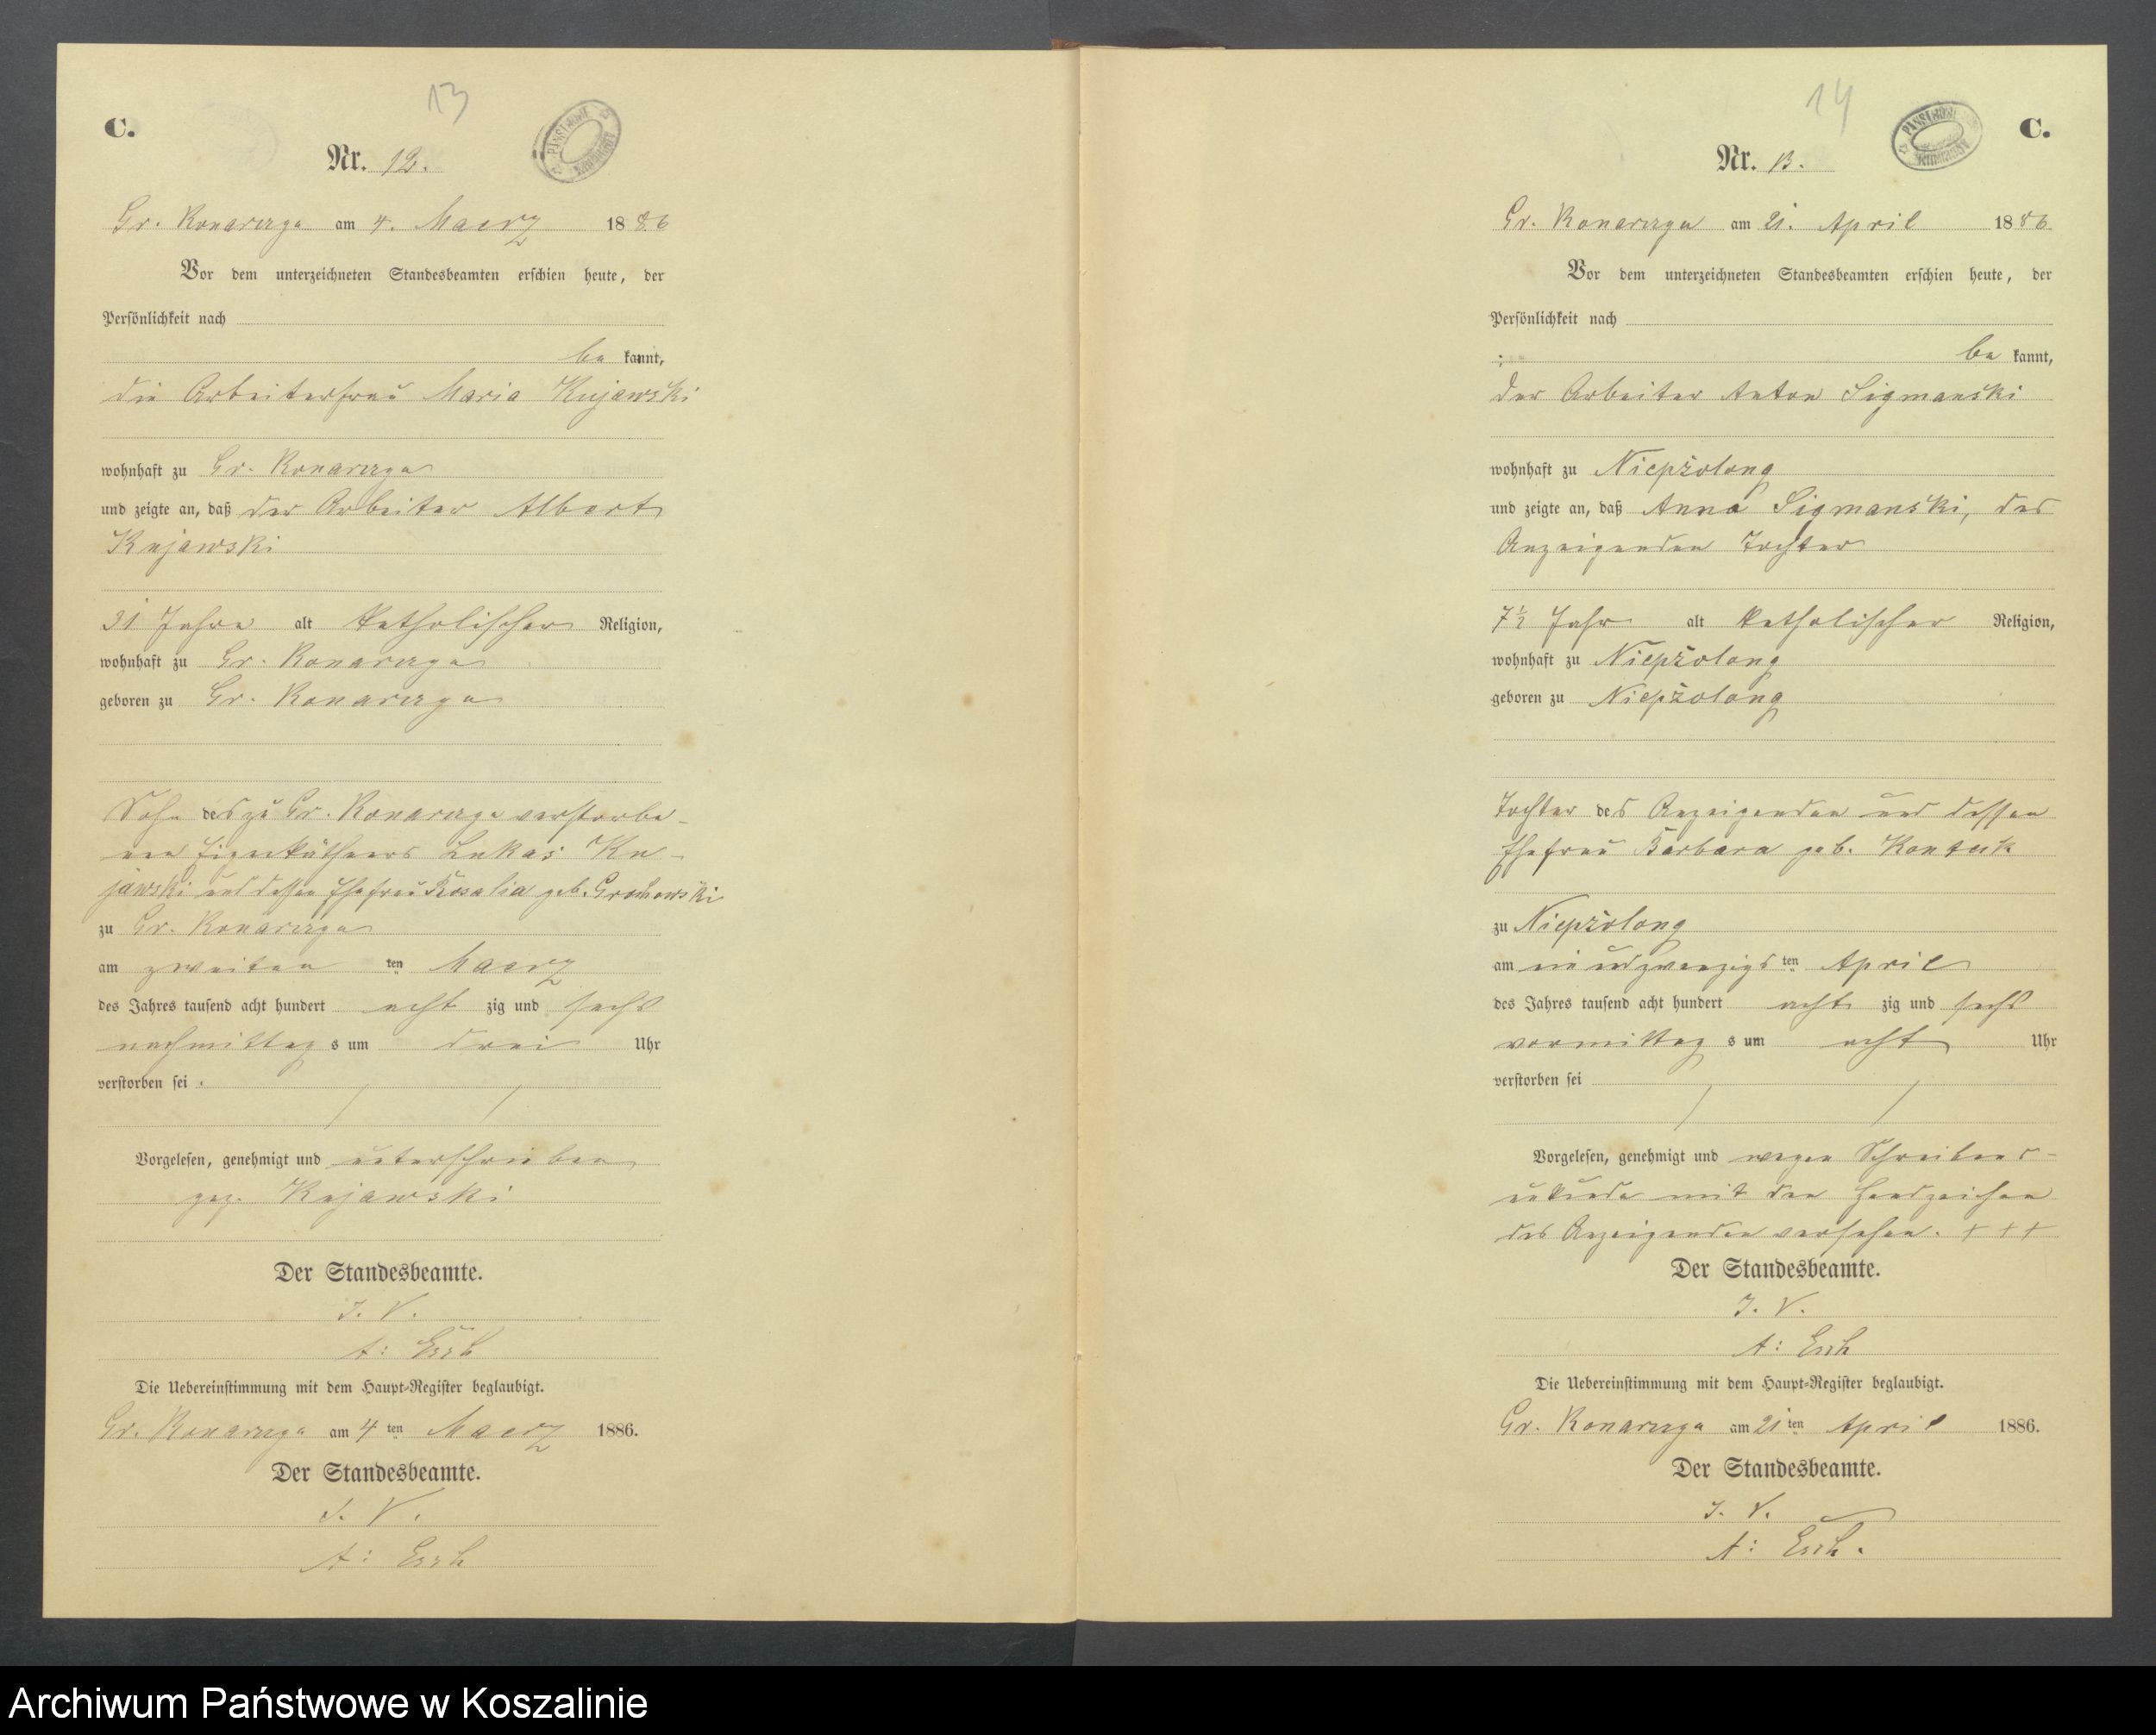 13
C.
Nr. 12.
Gr. Konarczyn am 4. Maerz 1886
Vor dem unterzeichneten Standesbeamten erschien heute, der
Persönlichkeit nach
be kannt,
die Arbeiterfrau Maria Kujawski
wohnhaft zu Gr. Konarczyn
und zeigte an, daß der Arbeiter Albert
Kujawski
31 Jahre alt katholischer Religion,
wohnhaft zu Gr. Konarczyn
geboren zu Gr. Konarczyn
Sohn des zu Gr. Konarczyn verstorbe-
nen Eigenkäthners Lukas Ku-
jawski und dessen Ehefrau Rosalia geb. Grochowski
zu Gr. Konarczyn
am zweiten ten Maerz
des Jahres tausend acht hundert acht zig und sechs
nachmittag s um drei Uhr
verstorben sei.
Vorgelesen, genehmigt und unterschrieben
gez. Kujawski
Der Standesbeamte.
J. V.
A: Esch
Die Uebereinstimmung mit dem Haupt-Register beglaubigt.
Gr. Konarczyn am 4 ten Maerz 1886.
Der Standesbeamte.
J. V.
A: Esch
14
C.
Nr. 13.
Gr. Konarczyn am 21. April 1886
Vor dem unterzeichneten Standesbeamten erschien heute, der
Persönlichkeit nach
be kannt,
der Arbeiter Anton Sigmanski
wohnhaft zu Niepżolong
und zeigte an, daß Anna Sigmanski, des
Anzeigenden Tochter
7½ Jahr alt katholischer Religion,
wohnhaft zu Niepżolong
geboren zu Niepżolong
Tochter des Anzeigenden und dessen
Ehefrau Barbara geb.
zu Niepżolong
am ein und zwanzigs ten April
des Jahres tausend acht hundert acht zig und sechs
vormittag s um acht Uhr
verstorben sei
Vorgelesen, genehmigt und wegen Schreibens-
unkunde mit den Handzeichen
des Anzeigenden versehen. + + +
Der Standesbeamte.
J. V.
A: Esch
Die Uebereinstimmung mit dem Haupt-Register beglaubigt.
Gr. Konarczyn am 21 ten April 1886.
Der Standesbeamte.
J. V.
A: Esch.
Archiwum Państwowe w Koszalinie